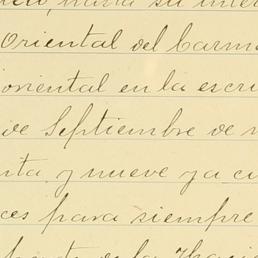 hasta su inter
Oriental del Carm
oriental en la escri
de Septiembre de n
nta y nueve ya ci
ces para siempre